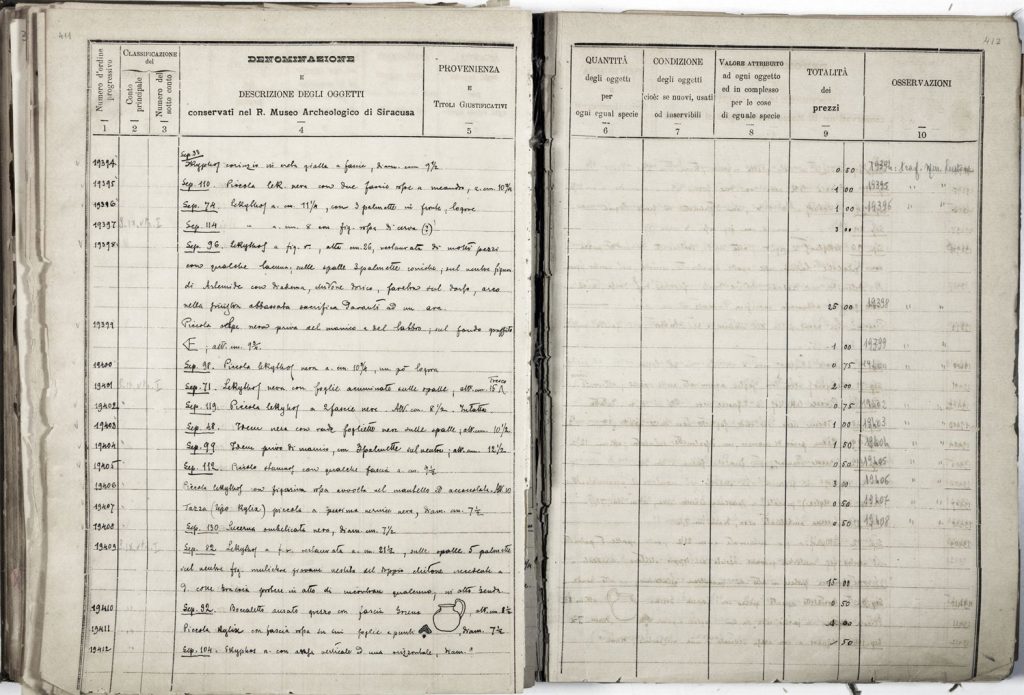 411
Numero d'ordine progressivo
CLASSIFICAZIONE
del
Conto principale
Numero del sotto conto
DENOMINAZIONE
E
DESCRIZIONE DEGLI OGGETTI
conservati nel R. Museo Archeologico di Siracusa
PROVENIENZA
E
TITOLI GIUSTIFICATIVI
1 2 3 4 5
19394 Skyphos corinzio in creta gialla a fascie, diam. cm 9½
19395 Sep. 110. Piccola lek. nera con due fascie rosse a meandro, a. cm. 10¾
19396 Sep. 74. Lekythos a. cm. 11¼, con 3 palmette in fronte, logore
19397 Sep. 114 " a. cm. 8 con fig. rossa di cerva (?)
19398 Sep. 96. Lekythos a fig. r., alta cm. 26, restaurata di molti pezzi
con qualche lacuna; sulle spalle 3 palmette; sul ventre figura
di Artemide con diadema, chitone dorico, faretra sul dorso, arco
nella abbassata sacrifica davanti ad un ara
19399 Piccola nera priva del manico e del labbro; sul fondo graffito
E; alt. cm. 9½
19400 Sep. 98. Piccola lekythos nera a. cm 10¾, un pò logora
19401 Sep. 71. Lekythos nera con foglie acuminate sulle spalle, alt. cm. 15
19402 Sep. 119. Piccola lekythos a 2 fascie nere. Alt. cm. 8½ Intatta
19403 Sep. 48. Idem nera con fogliette nere sulle spalle; alt. cm. 10½
19404 Sep. 99 Idem priva di manico, con 3 palmette sul ventre; alt. cm. 12½
19405 Sep. 112. Piccolo stamnos con qualche fascia a. cm. 9½
19406 Piccola lekythos con figurina rossa avvolta nel mantello ed accoccolata. Alt. 10
19407 Tazza (tipo kylix) piccola a vernice nera, diam. cm. 7½
19408 Sep. 130 Lucerna ombelicata nera, diam. cm. 7½
19409 Sep. 82 Lekythos a f. r. restaurata a. cm. 21½, sulle spalle 5 palmette
sul ventre fig. muliebre giovane vestita del doppio chitone
colle braccia protese in atto di qualcuno, in atto
19410 Sep. 92. Boccaletto ansato grezzo con fascia alt. cm 8½
19411 Piccola kylix con fascia rossa su cui foglie e punti, diam. 7½
19412 Sep. 104. Skyphos a. con ansa verticale e una orizzontale, diam."
412
QUANTITÀ
degli oggetti
per
ogni egual specie
CONDIZIONE
degli oggetti
cioè: se nuovi, usati
od inservibili
VALORE ATTRIBUTO
ad ogni oggetto
ed in complesso
per le cose
di eguale specie
TOTALITÀ
dei
prezzi
OSSERVAZIONI
6 7 8 9 10
0 50 19394:
1 00 19395 " "
1 00 19396 " "
3 00
25 00 19398 " "
1 00 19399 " "
0 75 19400 " "
2 00
0 75 19402 " "
1 00 19403 " "
1 50 19404 " "
0 50 19405 " "
3 00 19406 " "
0 50 19407 " "
0 50 19408 " "
15 00
0 50
1 00
1 50